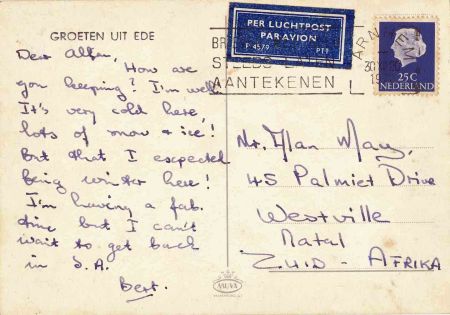 GROETEN UIT EDE
Dear Allan,
How are
you keeping? I'm well.
It's very cold here,
lots of snow & ice!
But that I expected
being winter here!
I'm having a fab.
time but I can't
wait to get back
in S.A.
Bert.
PER LUCHTPOST
PAR AVION
P 4579 PTT
STEEDS
AANTEKENEN
ARNHEM
25C
NEDERLAND
Mr. Alan May,
45 Palmiet Drive
Westville
Natal
ZUID - AFRIKA
MUVA